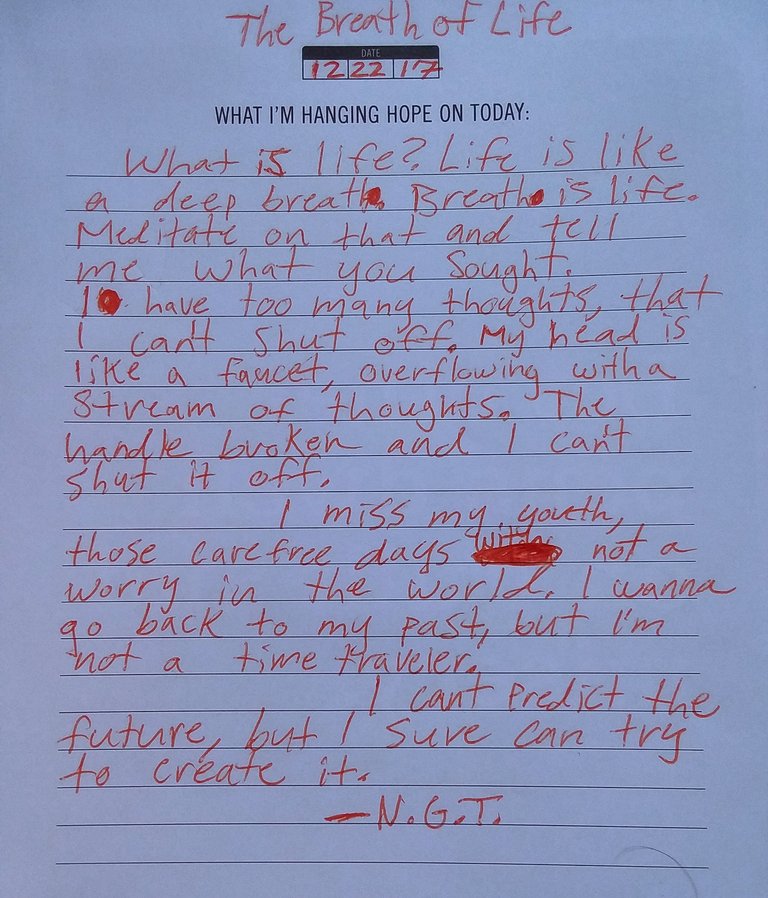 The Breath of Life
DATE
12 22 17
WHAT I'M HANGING HOPE ON TODAY:
What is life? Life is like
a deep breath. Breath is life.
Meditate on that and tell
me what you sought.
I have too many thoughts, that
I can't shut off. My head is
like a faucet, overflowing with a
stream of thoughts. The
handle broken and I can't
shut it off.
I miss my youth,
those carefree days with not a
worry in the world. I wanna
go back to my past, but I'm
not a time traveler.
I cant predict the
future, but I sure can try
to create it.
—N.G.T.